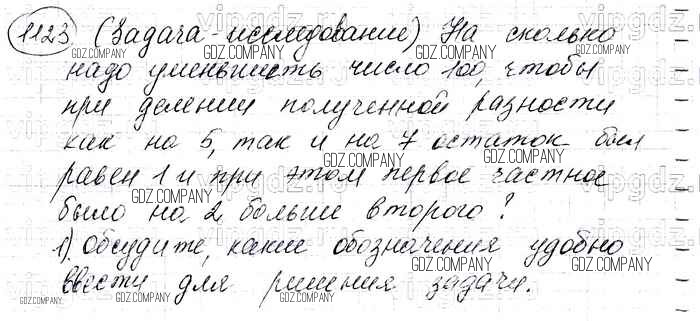 1123 (Задача-исследование) На сколько
надо уменьшить число 100, чтобы
при делении полученной разности
как на 5, так и на 7 остаток был
равен 1 и при этом первое частное
было на 2 больше второго?
1) Обсудите, какие обозначения удобно
ввести для решения задачи.
GDZ.COMPANY
vipgdz.ru